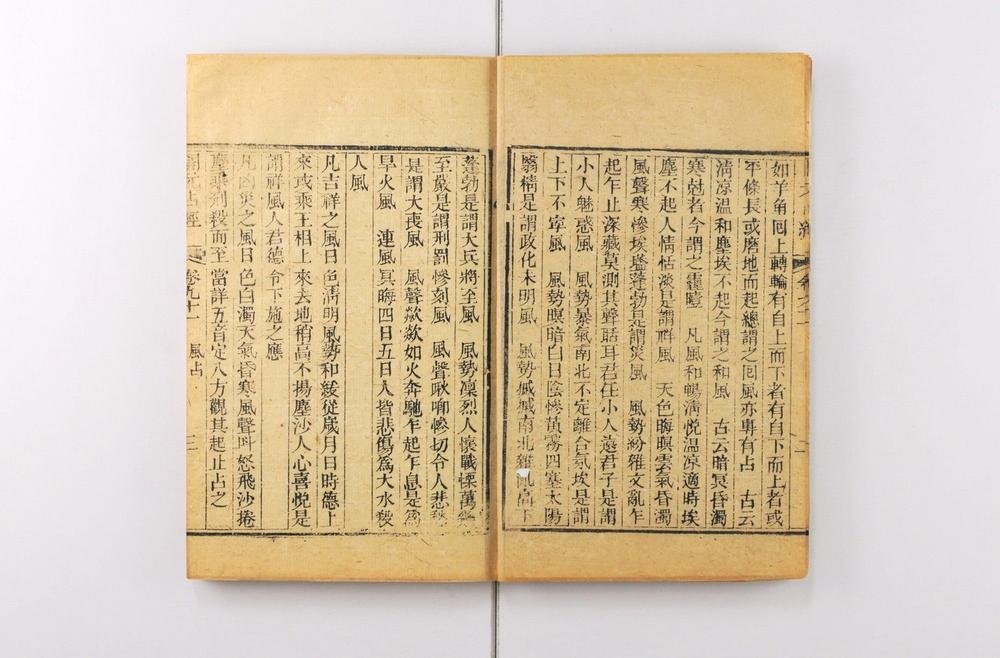 如羊角囘上轉輪有自上而下者有自下而上者或
平條長或磨地而起總謂之囘風亦專有占 古云
淸凉温和塵埃不起今謂之和風 古云暗冥昏濁
寒尅者今謂之霾曀 凡風和暢淸悅温凉適時埃
塵不起人情恬淡是謂祥風 天色晦暝雲氣昏濁
風聲寒慘埃塵蓬勃是謂災風 風勢紛錯交亂乍
起乍止深藏草測其聲聒耳君任小人遠君子是謂
小人魅惑風 風勢暴氣南北不定離合氛埃是謂
上下不寧風 風勢暝暗白日陰慘黃霧四塞太陽
翳精是謂政化未明風 風勢 南北雜亂高下
蓬勃是謂大兵將至風 風勢凜烈人懷戰慄萬
至嚴是謂刑罰慘刻風 風聲啾唧慘切令人悲愁
是謂大喪風 風聲歘歘如火奔馳乍起乍息是爲
旱火風 連風冥晦四日五日人皆悲傷爲大水殺
人風
凡吉祥之風日色淸明風勢和緩從歲月日時德上
來或乘王相上來去地稍高不揚塵沙人心喜悅是
謂祥風人君德令下施之應
凡凶災之風日色白濁天氣昏寒風聲呌怒飛沙捲
塵乘刑殺而至當詳五音定八方觀其起止占之
開元占經 卷九十一 風占 三